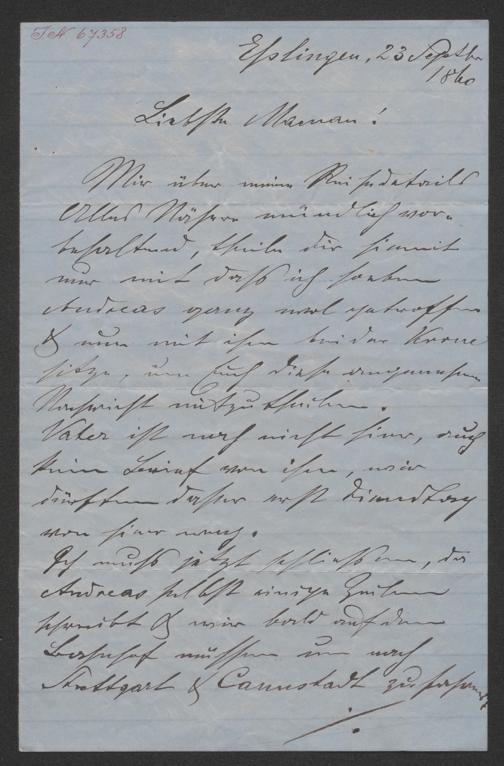 IN 67358
Esslingen, 23 Septbr
1860
Liebste Maman!
Mir über meine Reisedetails
Alles Nähere mündlich vor-
behaltend, theile dir hiemit
nur mit dass ich soeben
Andreas ganz wol getroffen
& nun mit ihm bei der Krone
sitze, um Euch diese angenehme
Nachricht mitzutheilen.
Vater ist noch nicht hier, auch
kein Brief von ihm, wir
dürften daher erst Dienstag
von hier weg.
Ich muss jetzt schliessen, da
Andreas selbst einige Zeilen
schreibt & wir bald auf den
Bahnhof müssen um nach
Stuttgart & Cannstadt zu fahren